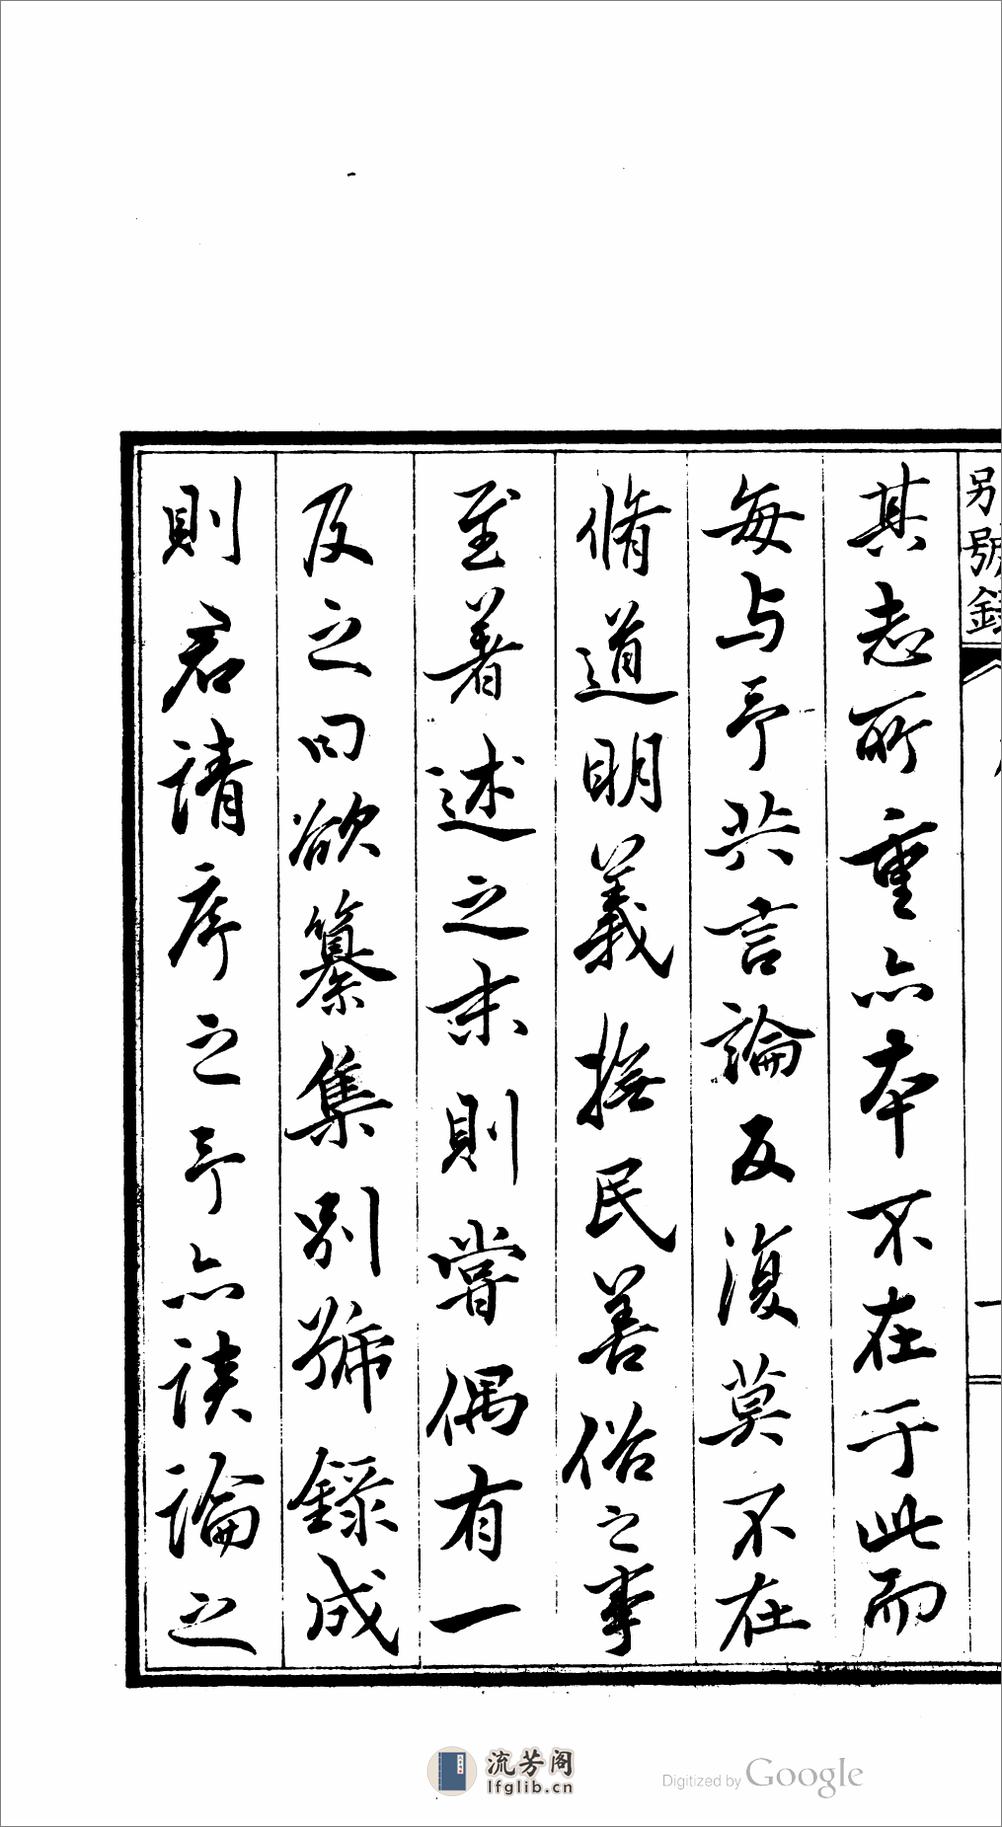 别號錄
其志所重亦本不在于此而
每与予共言論反復莫不在
脩道明義撫民善俗之事
至著述之末則嘗偶有一
及之曰欲纂集别號錄成
則君請序之予亦談論之
流芳阁
lfglib.cn
Digitized by Google